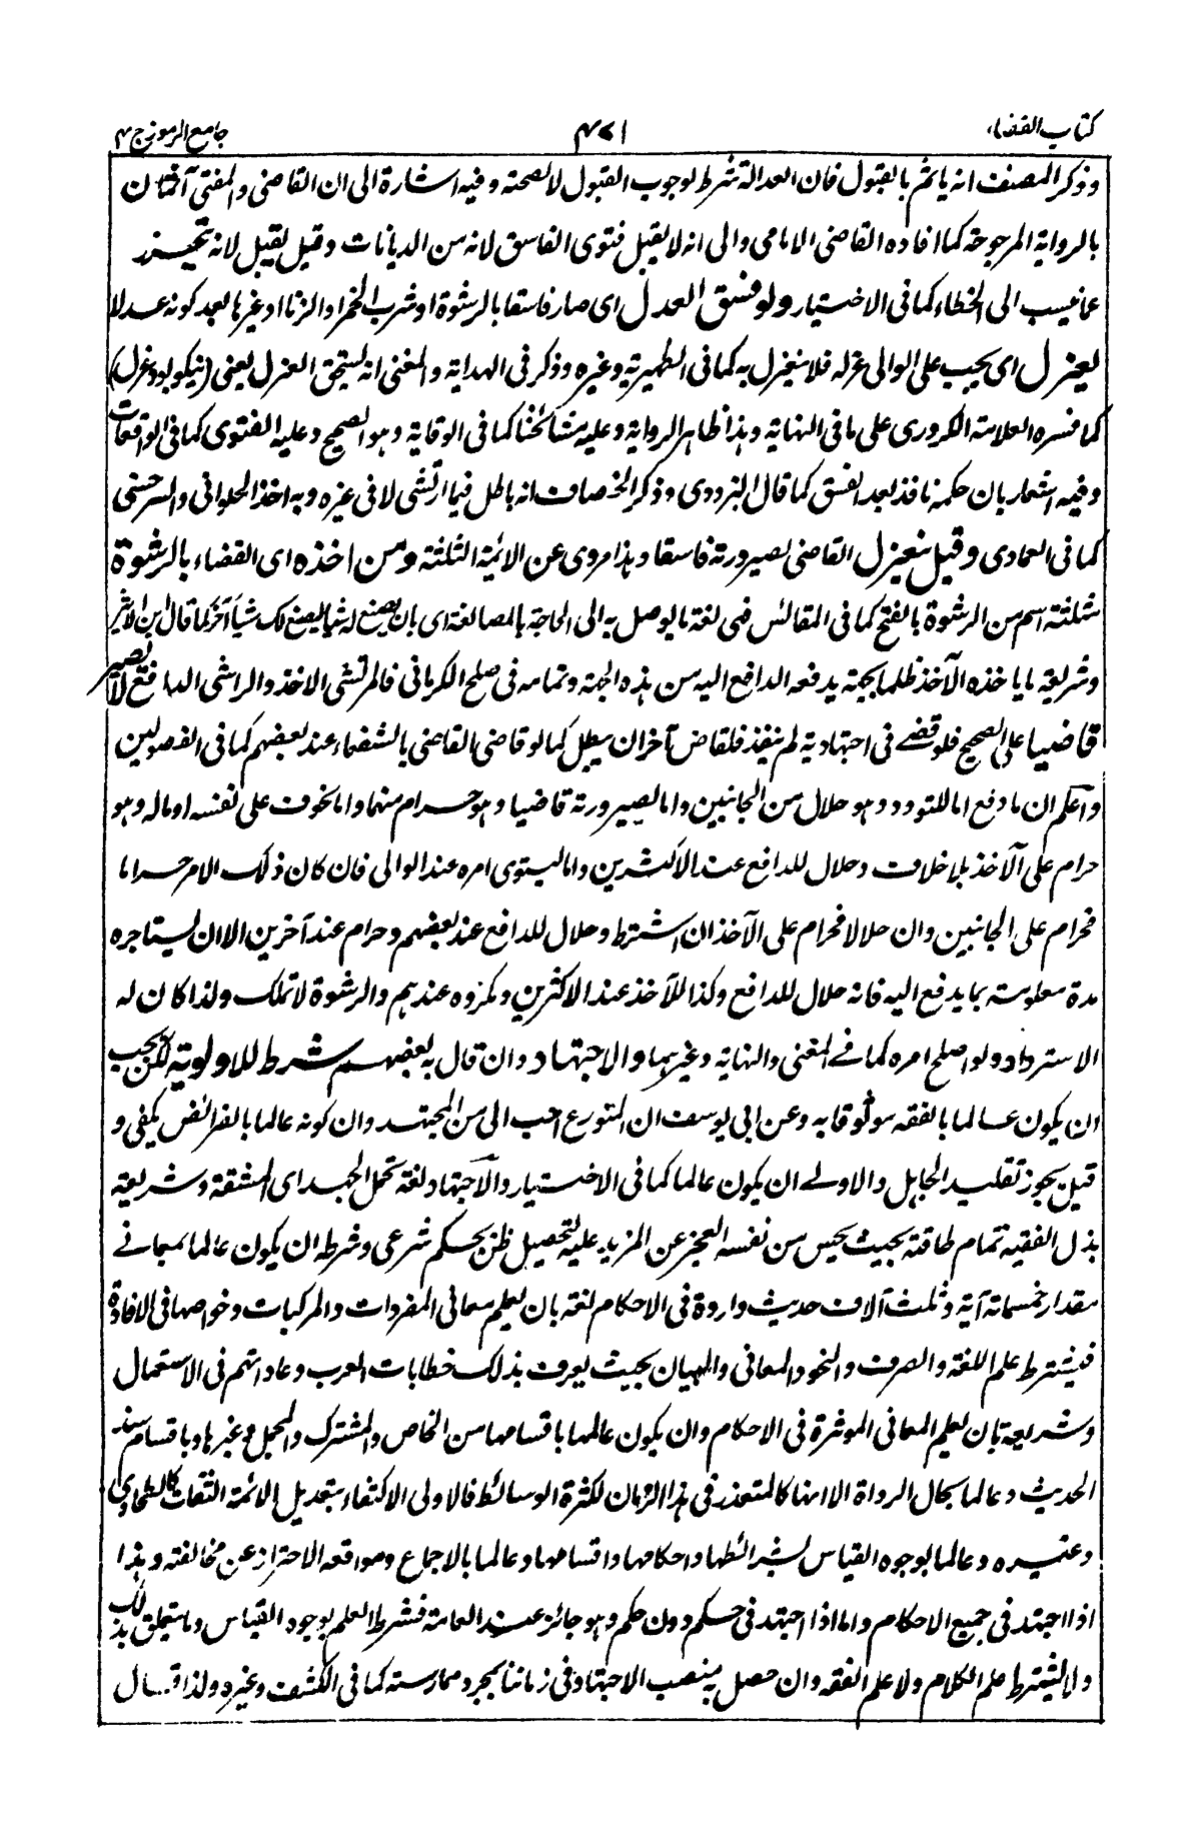 كتاب القضاء
٤٧١
جامع الرموز ج ٢
وذكر المصنف انه ياثم بالقبول فان العدالة شرط لوجوب القبول لا لصحته وفيه اشارة الى ان القاضى والمفتى آفتان
بالرواية المرجوحة كما افاده القاضى الامامى والى انه لا يقبل فتوى الفاسق لانه من الديانات وقيل يقبل لانه يتحرز
عما نسب الى الخطاء كما فى الاختيار ولو فسق العدل اى صار فاسقا بالرشوة او شرب الخمر او الزنا او غيرها بعد كونه عدلا
يعزل اى يجب على الوالى عزله فلا ينعزل به كما فى الظهيرية وغيره وذكر فى الهداية والمغنى انه يستحق العزل يعنى (نيكو بود عزل)
كما فسره العلامة الكردرى على ما فى النهاية وهذا ظاهر الرواية وعليه مشائخنا كما فى الوقاية وهو الصحيح وعليه الفتوى كما فى الواقعات
وفيه اشعار بان حكمه نافذ بعد الفسق كما قال البزدوى وذكر الخصاف انه باطل فيما ارتشى لا فى غيره وبه اخذ الحلوانى والسرخسى
كما فى العمادى وقيل ينعزل القاضى لصيرورته فاسقا وهذا مروى عن الائمة الثلثة ومن اخذه اى القضاء بالرشوة
مثلثة اسم من الرشوة بالفتح كما فى المقائس فهى لغة ما يوصل به الى الحاجة بالمصانعة اى بان يصنع له شيا ليصنع لك شيأ آخر كما قال ابن الاثير
وشريعة ما ياخذه الآخذ ظلما بجهة يدفعه الدافع اليه من هذه الجهة وتمامه فى صلح الكرمانى فالمرتشى الاخذ والراشى الدافع لا يصير
قاضيا على الصحيح فلو قضى فى اجتهادية لم ينفذ فلقاض آخر ان يبطل كما لو قاضى القاضى بالشفعاء عند بعضهم كما فى الفصولين
واعلم ان ما دفع اما للتودد وهو حلال من الجانبين واما لصيرورته قاضيا وهو حرام منهما واما لخوف على نفسه او ماله وهو
حرام على الآخذ بلا خلاف وحلال للدافع عند الاكثرين واما ليستوى امره عند الوالى فان كان ذلك الامر حراما
فحرام على الجانبين وان حلالا فحرام على الآخذ ان اشترط وحلال للدافع عند بعضهم وحرام عند آخرين الا ان يستاجره
مدة معلومة بما يدفع اليه فانه حلال للدافع وكذا للآخذ عند الاكثرين ومكروه عندهم والرشوة لا تملك ولذا كان له
الاسترداد ولو اصلح امره كما فى المغنى والنهاية وغيرهما والاجتهاد وان قال به بعضهم شرط للاولوية لكن يجب
ان يكون عالما بالفقه موثوقا به وعن ابى يوسف ان المتورع احب الى من المجتهد وان كونه عالما بالفرائض يكفى و
قيل يجوز تقليد الجاهل والاولى ان يكون عالما كما فى الاختيار والاجتهاد لغة تحمل الجهد اى المشقة وشريعة
بذل الفقيه تمام طاقته بحيث يحس من نفسه العجز عن المزيد عليه لتحصيل ظن بحكم شرعى وشرطه ان يكون عالما بمعانى
مقدار خمسمائة آية وثلث آلاف حديث واردة فى الاحكام لغة بان يعلم معانى المفردات والمركبات وخواصها فى الافادة
فيشترط علم اللغة والصرف والنحو والمعانى والبيان بحيث يعرف بذلك خطابات العرب وعاداتهم فى الاستعمال
وشريعة بان يعلم المعانى الموثرة فى الاحكام وان يكون عالما باقسامها من الخاص والمشترك والمجمل وغيرها وباقسام سند
الحديث وعالما بحال الرواة الا انها كالمتعذر فى هذا الزمان لكثرة الوسائط فالاولى الاكتفاء بتعديل الائمة الثقات كالطحاوى
وغيره وعالما بوجوه القياس بشرائطها واحكامها واقسامها وعالما بالاجماع ومواقعه الاحتراز عن مخالفته وهذا
اذا اجتهد فى جميع الاحكام واما اذا اجتهد فى حكم دون حكم وهو جائز عند العامة فشرط العلم بوجود القياس وما يتعلق بذلك
ولا يشترط علم الكلام ولا علم الفقه وان حصل به منصب الاجتهاد فى زماننا بمجرد ممارسته كما فى الكشف وغيره ولذا قال